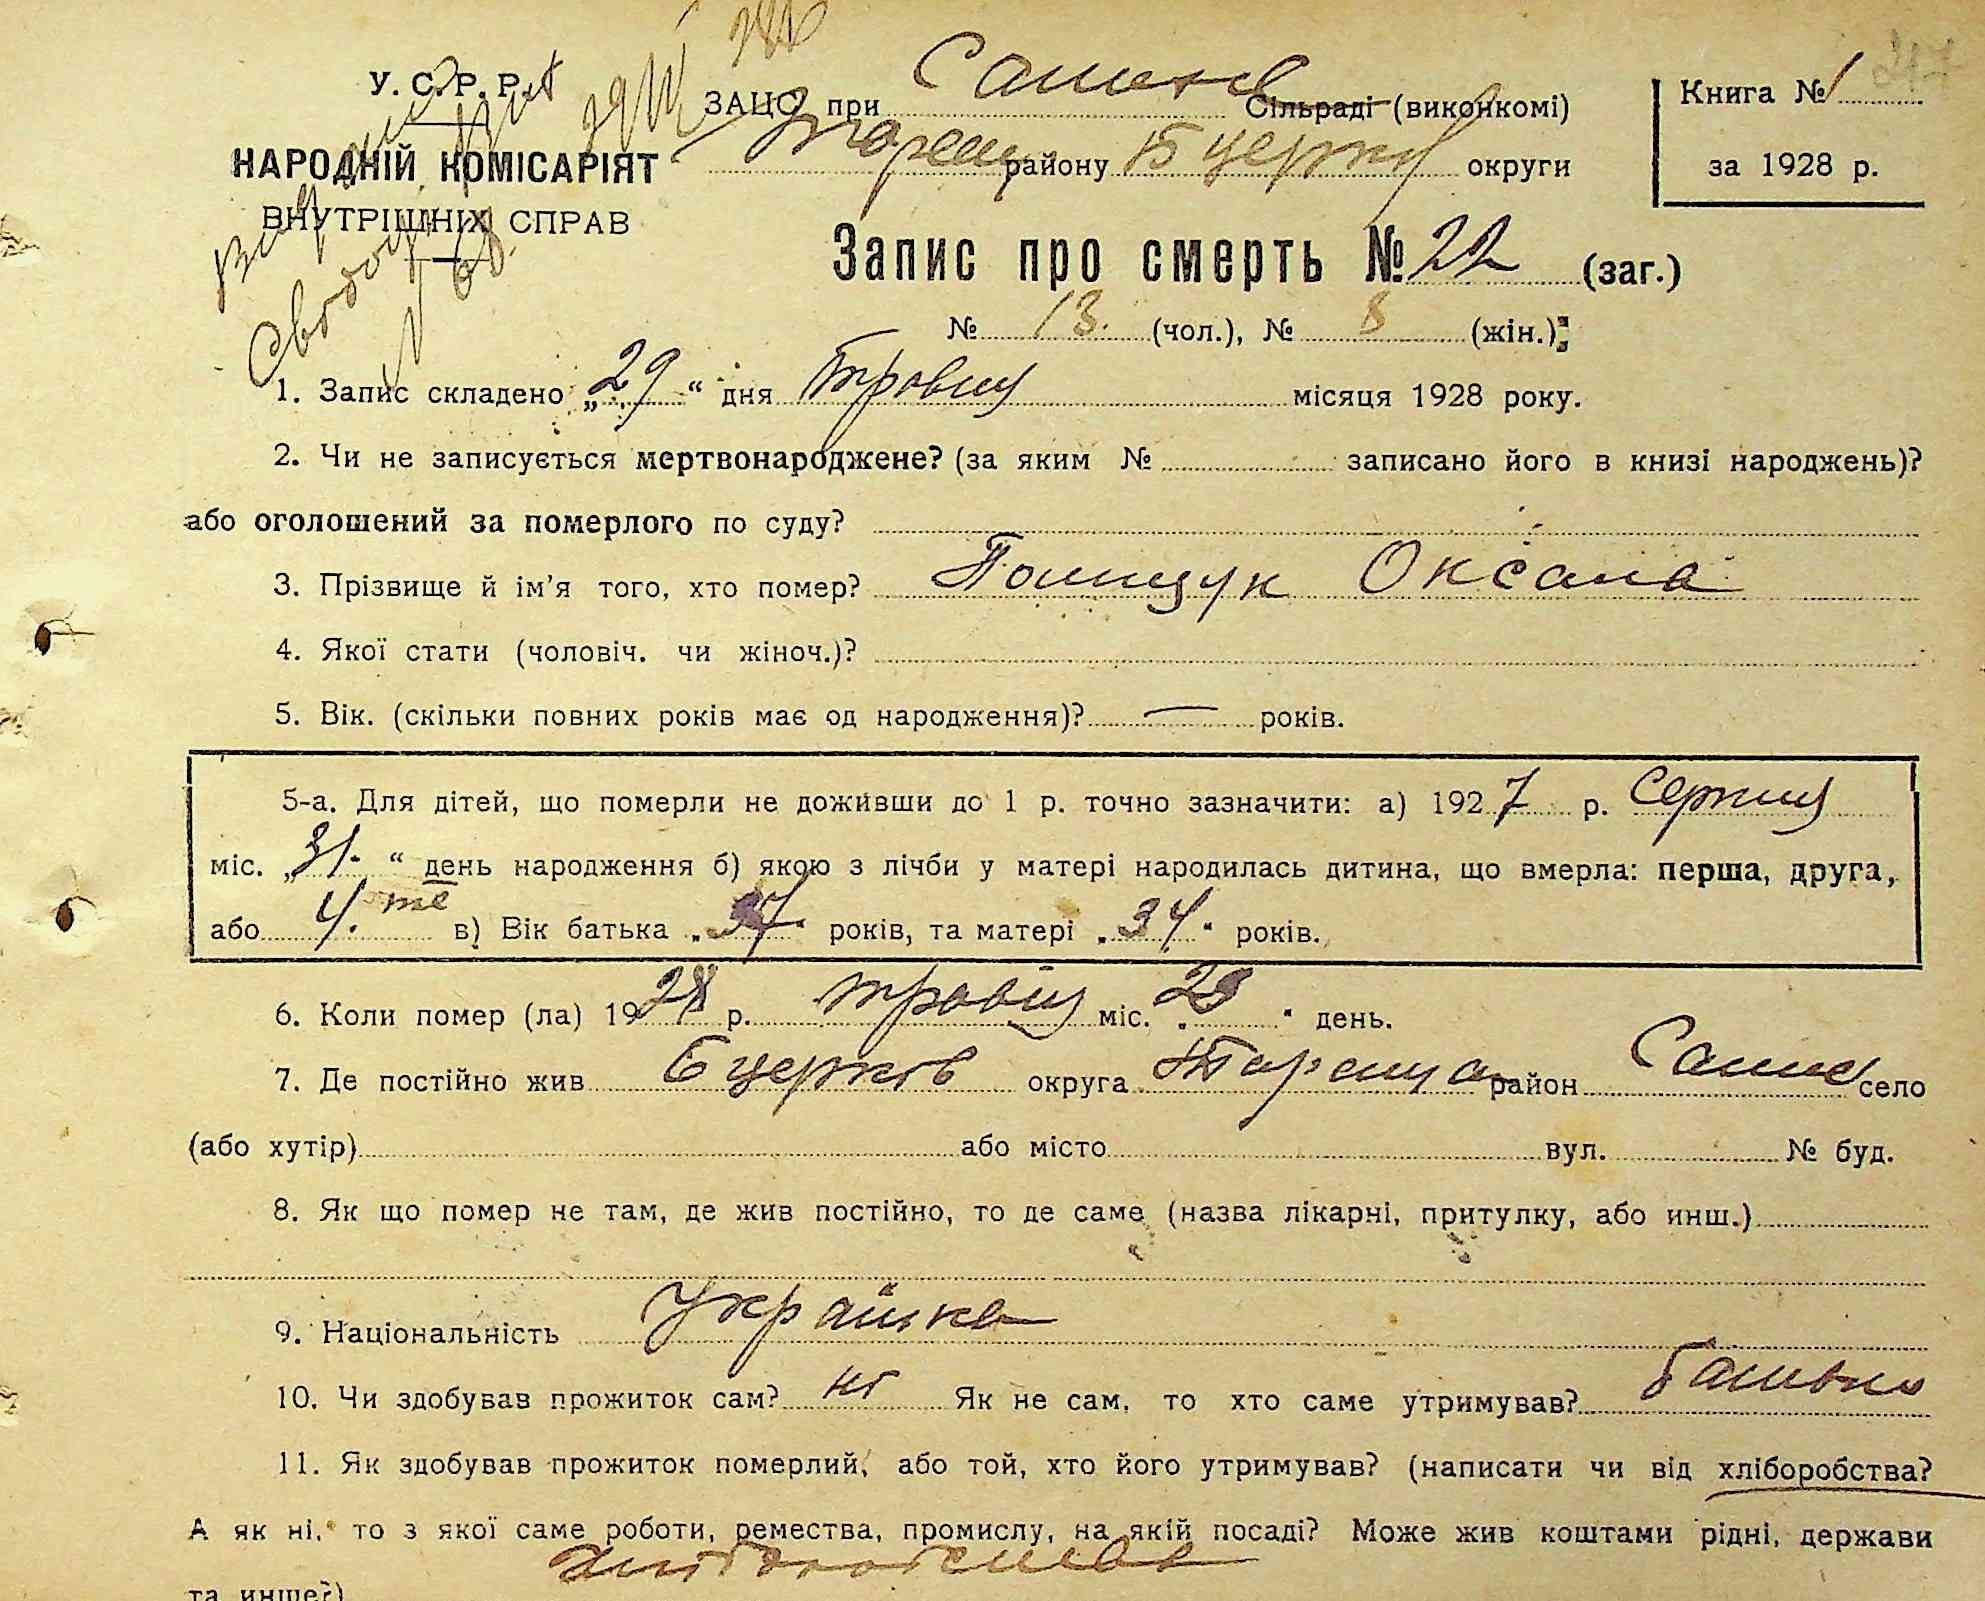 У. С. Р. Р.
ЗАЦС при Сільраді (виконкомі)
Книга № 1
НАРОДНІЙ КОМІСАРІЯТ
району Бцерків округи
за 1928 р.
ВНУТРІШНІХ СПРАВ
Запис про смерть № 22 (заг.)
№ 13. (чол.), № 8 (жін.)
1. Запис складено „29“ дня травня місяця 1928 року.
2. Чи не записується мертвонароджене? (за яким № записано його в книзі народжень)?
або оголошений за померлого по суду?
3. Прізвище й ім’я того, хто помер? Поліщук Оксана
4. Якої стати (чоловіч. чи жіноч.)?
5. Вік. (скільки повних років має од народження)? — років.
5-а. Для дітей, що померли не доживши до 1 р. точно зазначити: а) 1927 р. Серпня
міс. „31.“ день народження б) якою з лічби у матері народилась дитина, що вмерла: перша, друга,
або 4.те в) Вік батька „37“ років, та матері „34“ років.
6. Коли помер (ла) 1928 р. травня міс. „28“ день.
7. Де постійно жив Бцерків округа Тараща район село
(або хутір) або місто вул. № буд.
8. Як що помер не там, де жив постійно, то де саме (назва лікарні, притулку, або инш.)
9. Національність Українка
10. Чи здобував прожиток сам? ні Як не сам, то хто саме утримував? батько
11. Як здобував прожиток померлий, або той, хто його утримував? (написати чи від хліборобства?
А як ні, то з якої саме роботи, ремества, промислу, на якій посаді? Може жив коштами рідні, держави
хліборобства
та инше?)